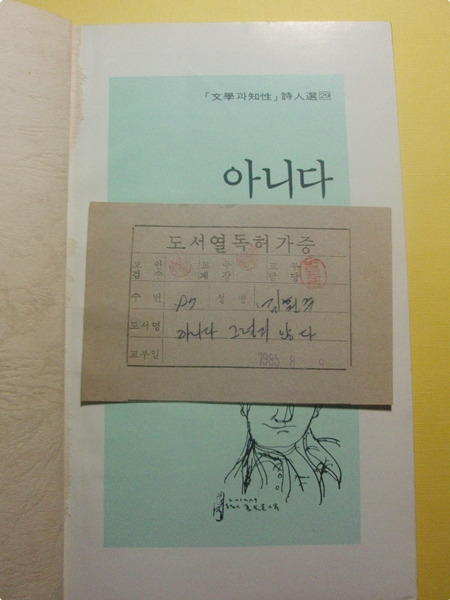 「文學과知性」詩人選 29
아니다
도서열독허가증
보안 교무 교무
검수 계장 담당
수번 성명 김현주
도서명 아니다 그렇지 않다
교부일 1985. 8. 9